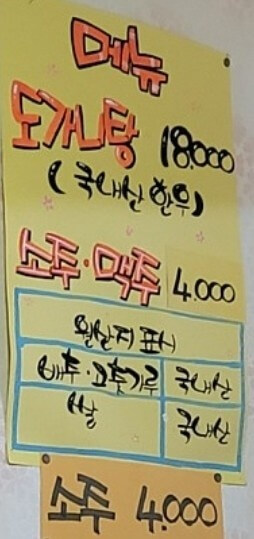 메뉴
도가니탕 18.000
(국내산 한우)
소주·맥주 4.000
원산지 표시
배추·고춧가루 국내산
쌀 국내산
소주 4.000